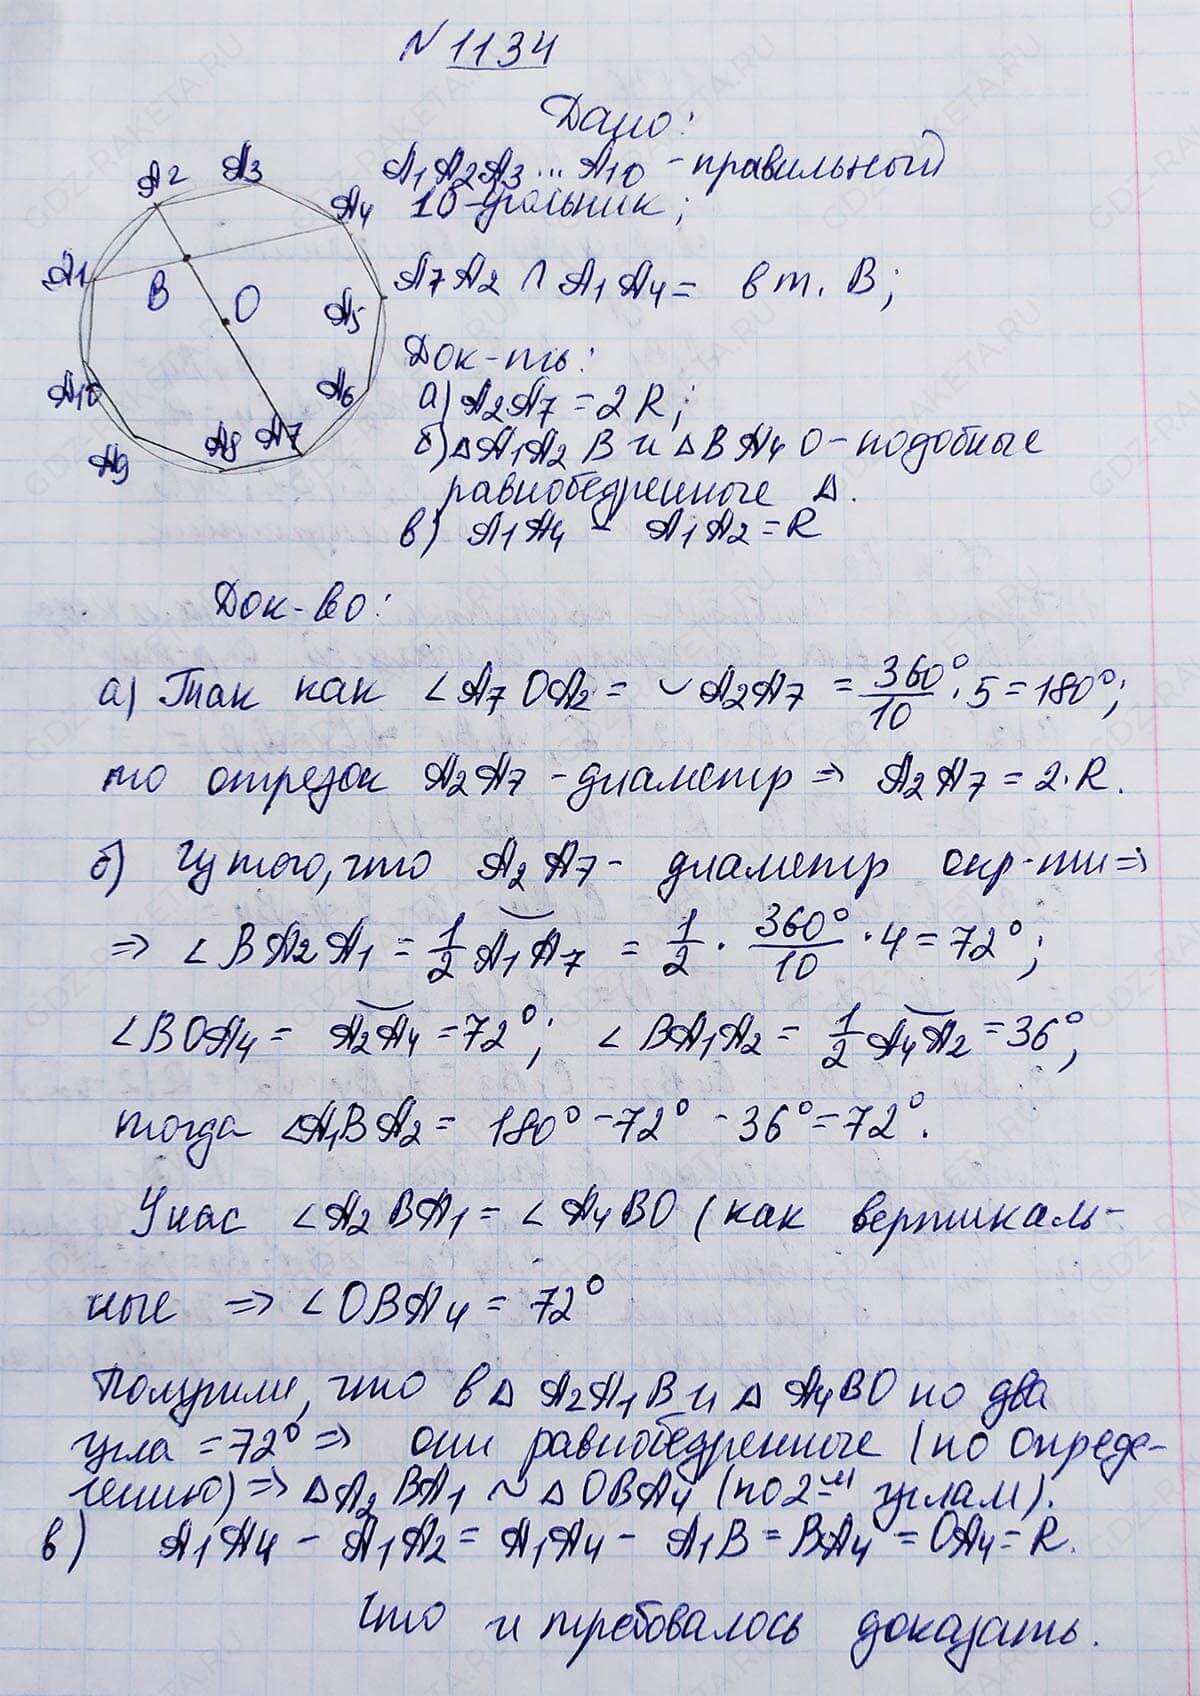 N 1134
Дано:
A1A2A3...A10 - правильный
10-угольник;
A7A2 ∩ A1A4 = в т. B;
Док-ть:
а) A2A7 = 2R;
б) △A1A2B и △BA4O - подобные
равнобедренные △.
в) A1A4 - A1A2 = R
A2 A3
A4
A1
B O
A5
A10 A6
A9 A8 A7
Док-во:
а) Так как ∠A7OA2 = ◡A2A7 = 360°/10 · 5 = 180°;
то отрезок A2A7 - диаметр ⇒ A2A7 = 2·R.
б) Из того, что A2A7 - диаметр окр-ти ⇒
⇒ ∠BA2A1 = 1/2 ◡A1A7 = 1/2 · 360°/10 · 4 = 72°;
∠BOA4 = ◡A2A4 = 72°; ∠BA1A2 = 1/2 ◡A4A2 = 36°,
тогда ∠A1BA2 = 180° - 72° - 36° = 72°.
У нас ∠A2BA1 = ∠A4BO (как вертикаль-
ные ⇒ ∠OBA4 = 72°
Получили, что в △A2A1B и △A4BO по два
угла = 72° ⇒ они равнобедренные (по опреде-
лению) ⇒ △A2BA1 ~ △OBA4 (по 2-м углам).
в) A1A4 - A1A2 = A1A4 - A1B = BA4 = OA4 = R.
Что и требовалось доказать.
GDZ-RAKETA.RU